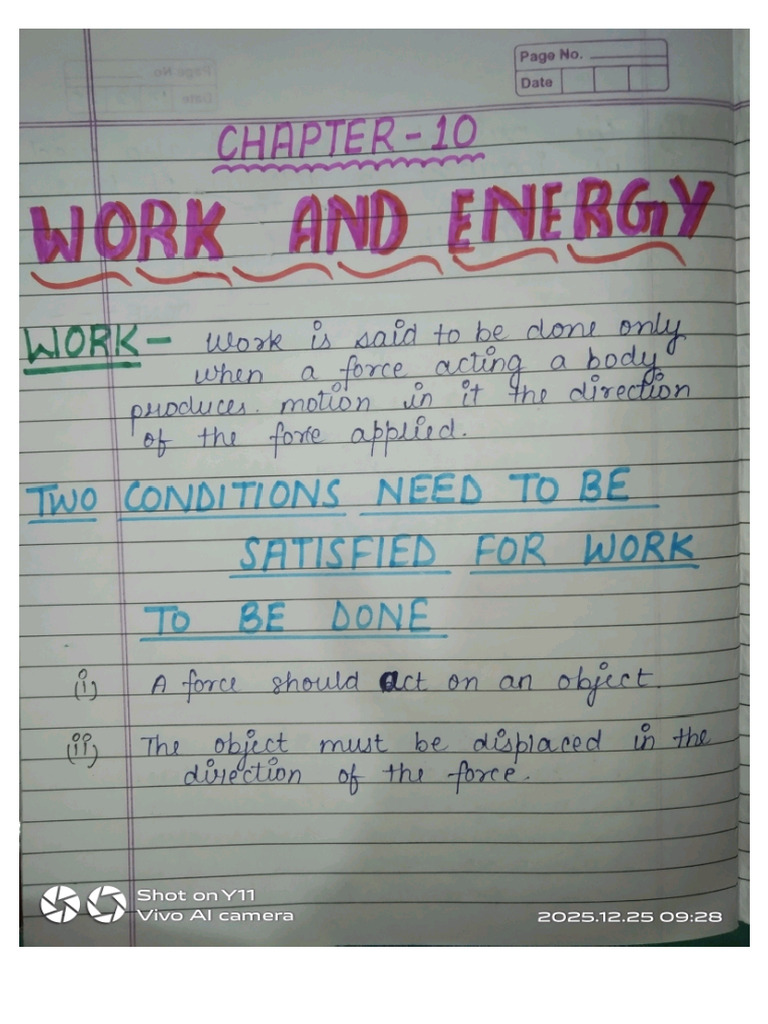 Page No.
Date
CHAPTER-10
WORK AND ENERGY
WORK- Work is said to be done only
when a force acting a body
produces. motion in it the direction
of the force applied.
TWO CONDITIONS NEED TO BE
SATISFIED FOR WORK
TO BE DONE
(i) A force should act on an object.
(ii) The object must be displaced in the
direction of the force.
Shot on Y11
Vivo AI camera
2025.12.25 09:28